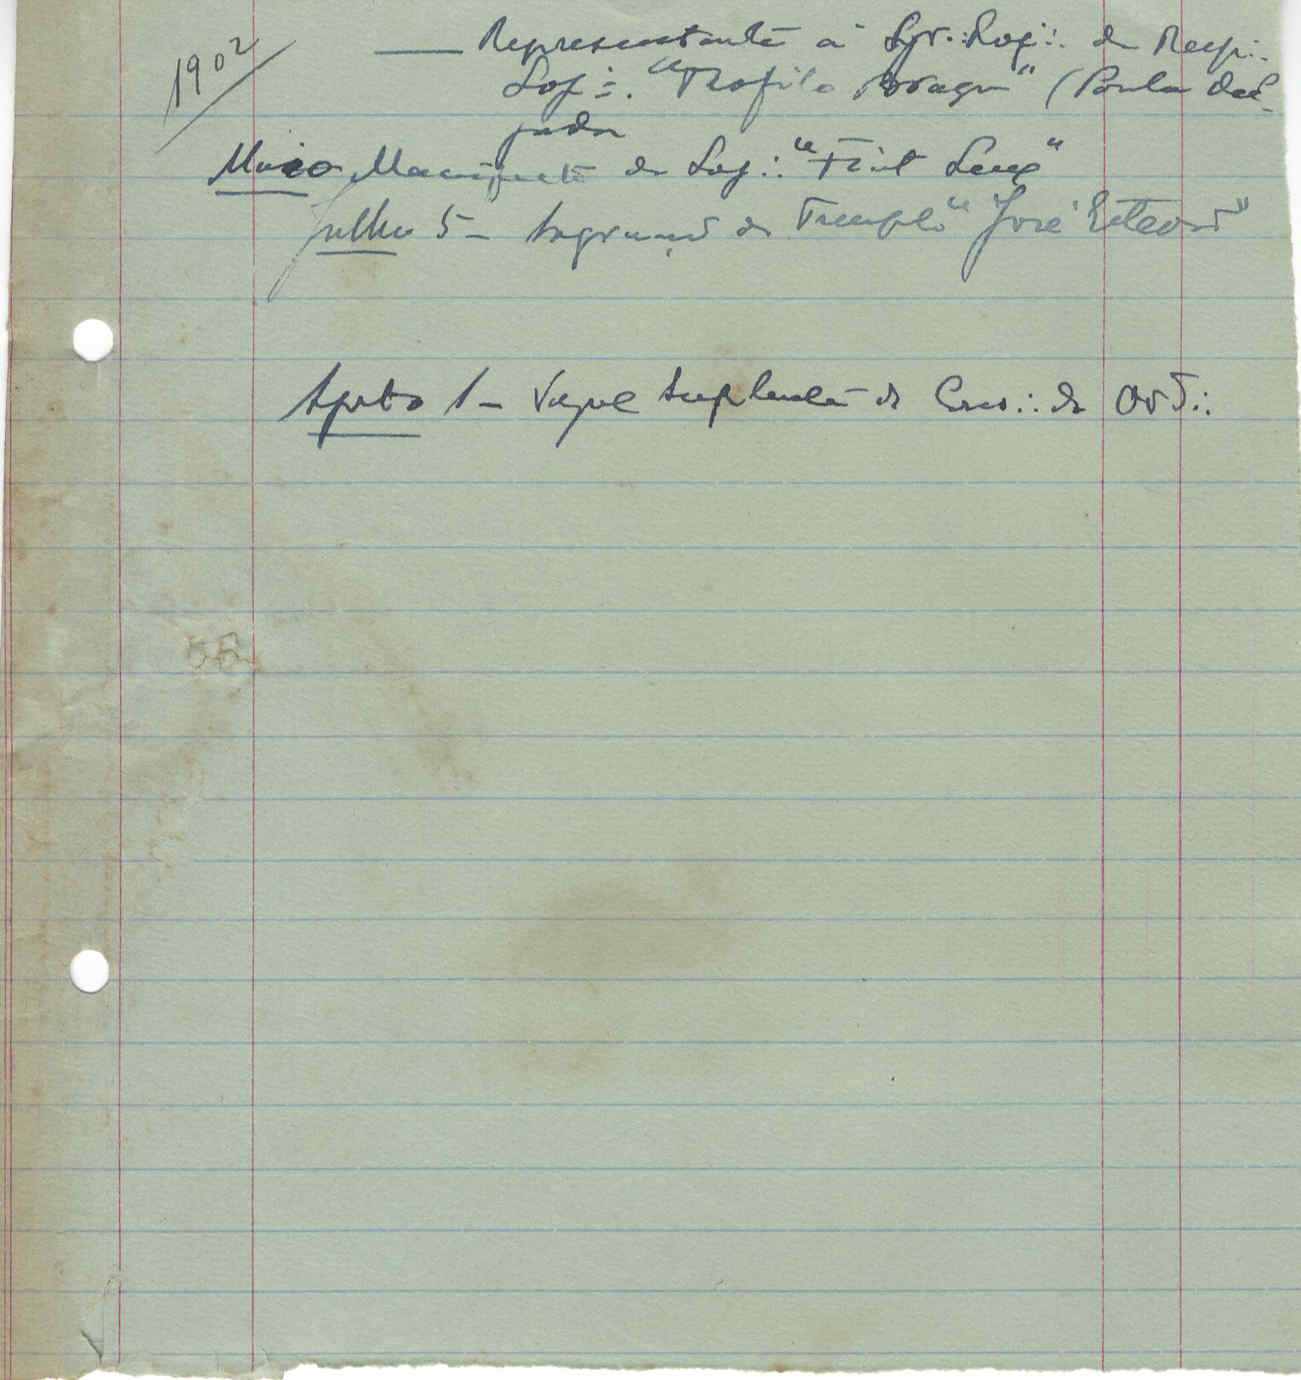 1902
— Representante à Gr∴ Loj∴ da Resp∴
Loj∴ "Teofilo Braga" (Ponta Del-
gada
Maio Manifesto da Loj∴ "Fiat Lux"
Julho 5 - Sagração do Templo "José Estevão"
Agosto 1 - Vogal Suplente do Cons∴ da Ord∴
56